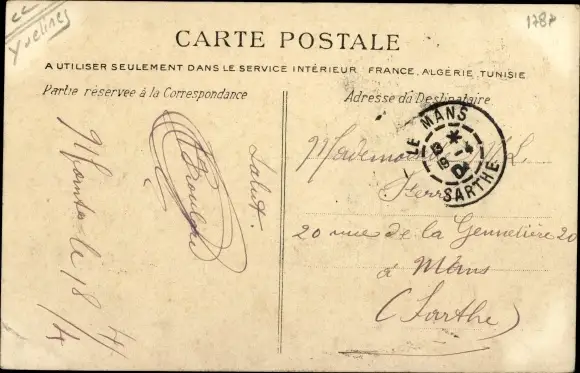 Yvelines
1787
CARTE POSTALE
A UTILISER SEULEMENT DANS LE SERVICE INTÉRIEUR FRANCE, ALGÉRIE, TUNISIE
Partie réservée à la Correspondance
Adresse du Destinataire
Salut.
le 18
LE MANS
SARTHE
Mademoiselle
20 rue de la
20
à Mans
(Sarthe)